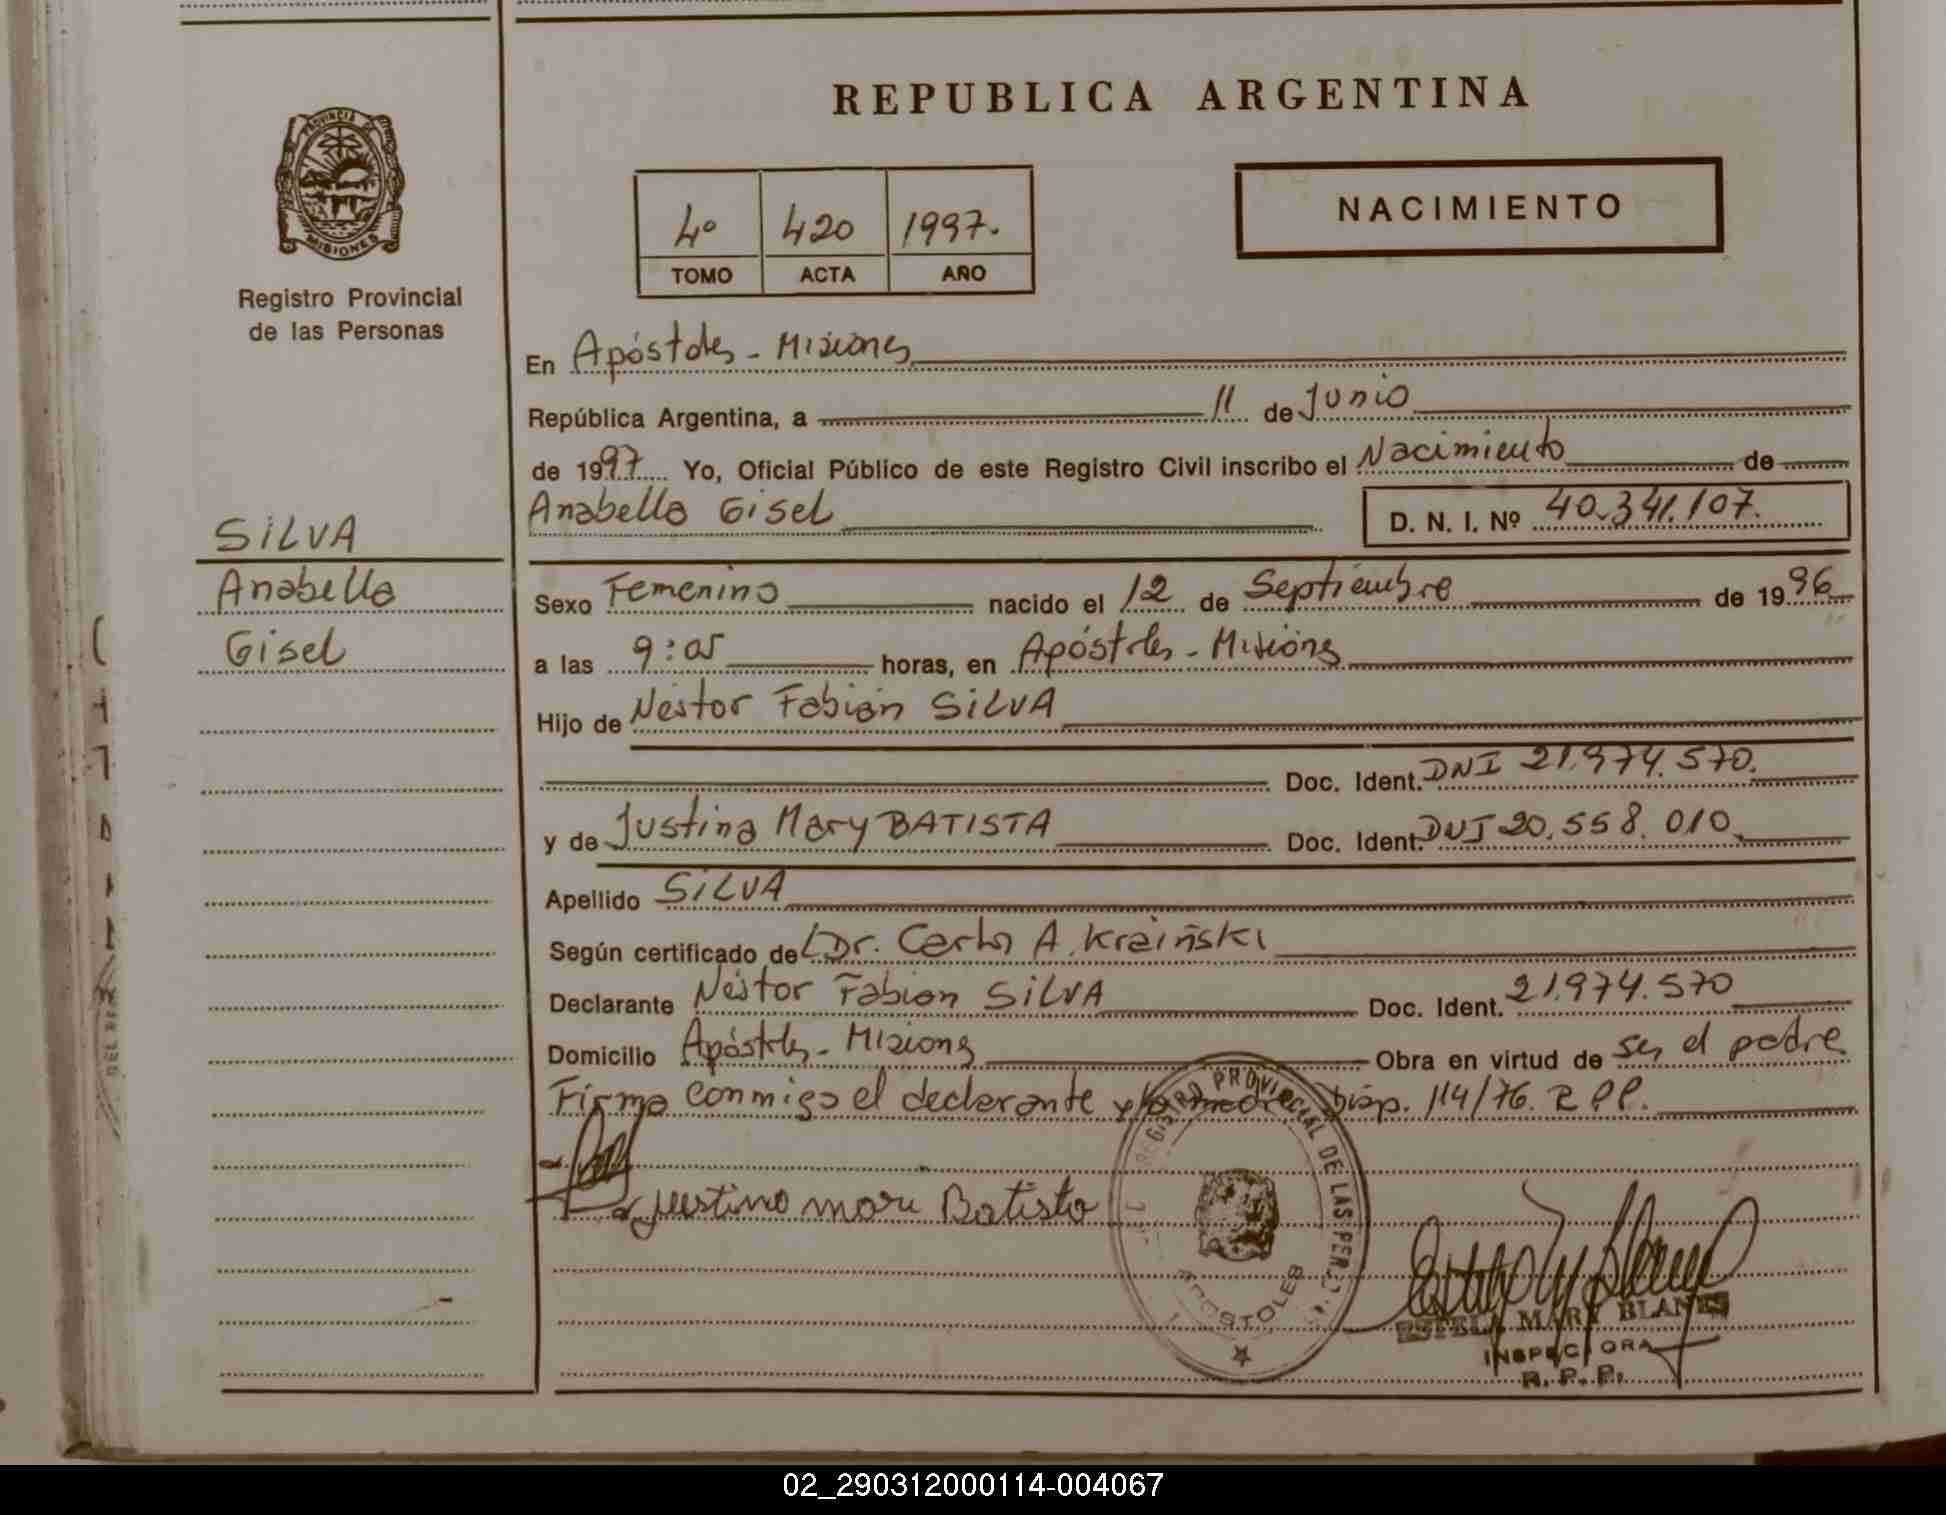 REPUBLICA ARGENTINA
PROVINCIA DE
MISIONES
Registro Provincial
de las Personas
4º 420 1997.
TOMO ACTA AÑO
NACIMIENTO
En Apóstoles - Misiones
República Argentina, a 11 de Junio
de 1997 Yo, Oficial Público de este Registro Civil inscribo el Nacimiento de
Anabella Gisel D. N. I. Nº 40.341.107.
SILVA
Anabella
Gisel
Sexo Femenino nacido el 12 de Septiembre de 1996
a las 9:05 horas, en Apóstoles - Misiones
Hijo de Néstor Fabián SILVA
Doc. Ident. DNI 21.974.570.
y de Justina Mary BATISTA Doc. Ident. DNI 20.558.010
Apellido SILVA
Según certificado de Dr. Carlos A. Kraiñski
Declarante Néstor Fabian SILVA Doc. Ident. 21.974.570
Domicilio Apóstoles - Misiones Obra en virtud de ser el padre
Firma conmigo el declarante y la madre Disp. 114/76. R.P.P.
Justina mari Batista
REGISTRO PROVINCIAL DE LAS PER
APOSTOLES
ESTELA MARY BLANES
INSPECTORA
R. P. P.
02_290312000114-004067